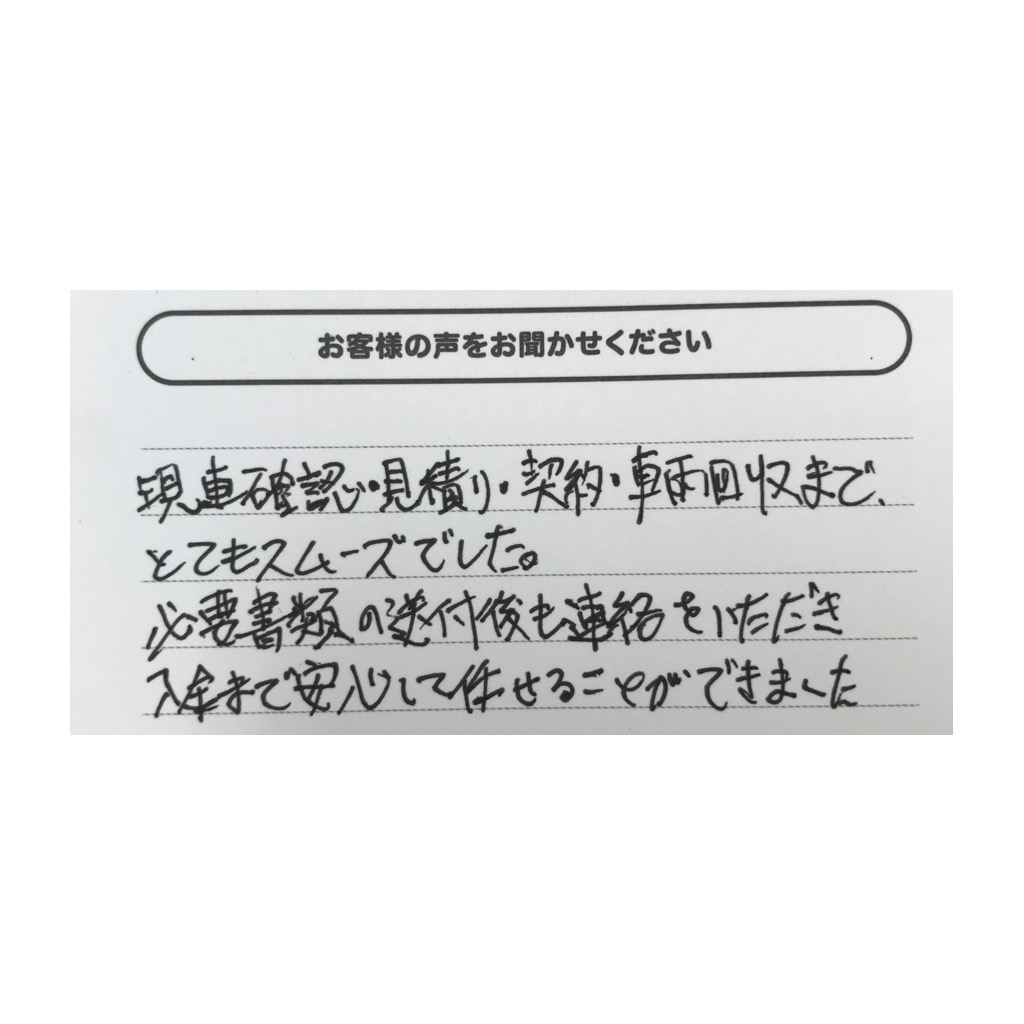 お客様の声をお聞かせください
現車確認・見積り・契約・車両回収まで、
とてもスムーズでした。
必要書類の送付後も連絡をいただき
入金まで安心して任せることができました